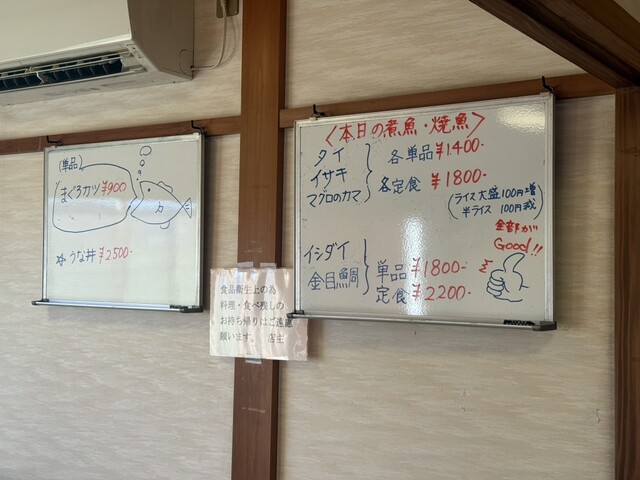 (単品)
まぐろカツ ¥900
カ
☆ うな丼 ¥2500-
食品衛生上の為
料理・食べ残しの
お持ち帰りはご遠慮
願います。 店主
〈本日の煮魚・焼魚〉
タイ
イサキ
マグロのカマ
各単品 ¥1400-
各定食 ¥1800-
(ライス大盛100円増
半ライス 100円減)
全部が
Good!!
イシダイ
金目鯛
単品 ¥1800-
定食 ¥2200-